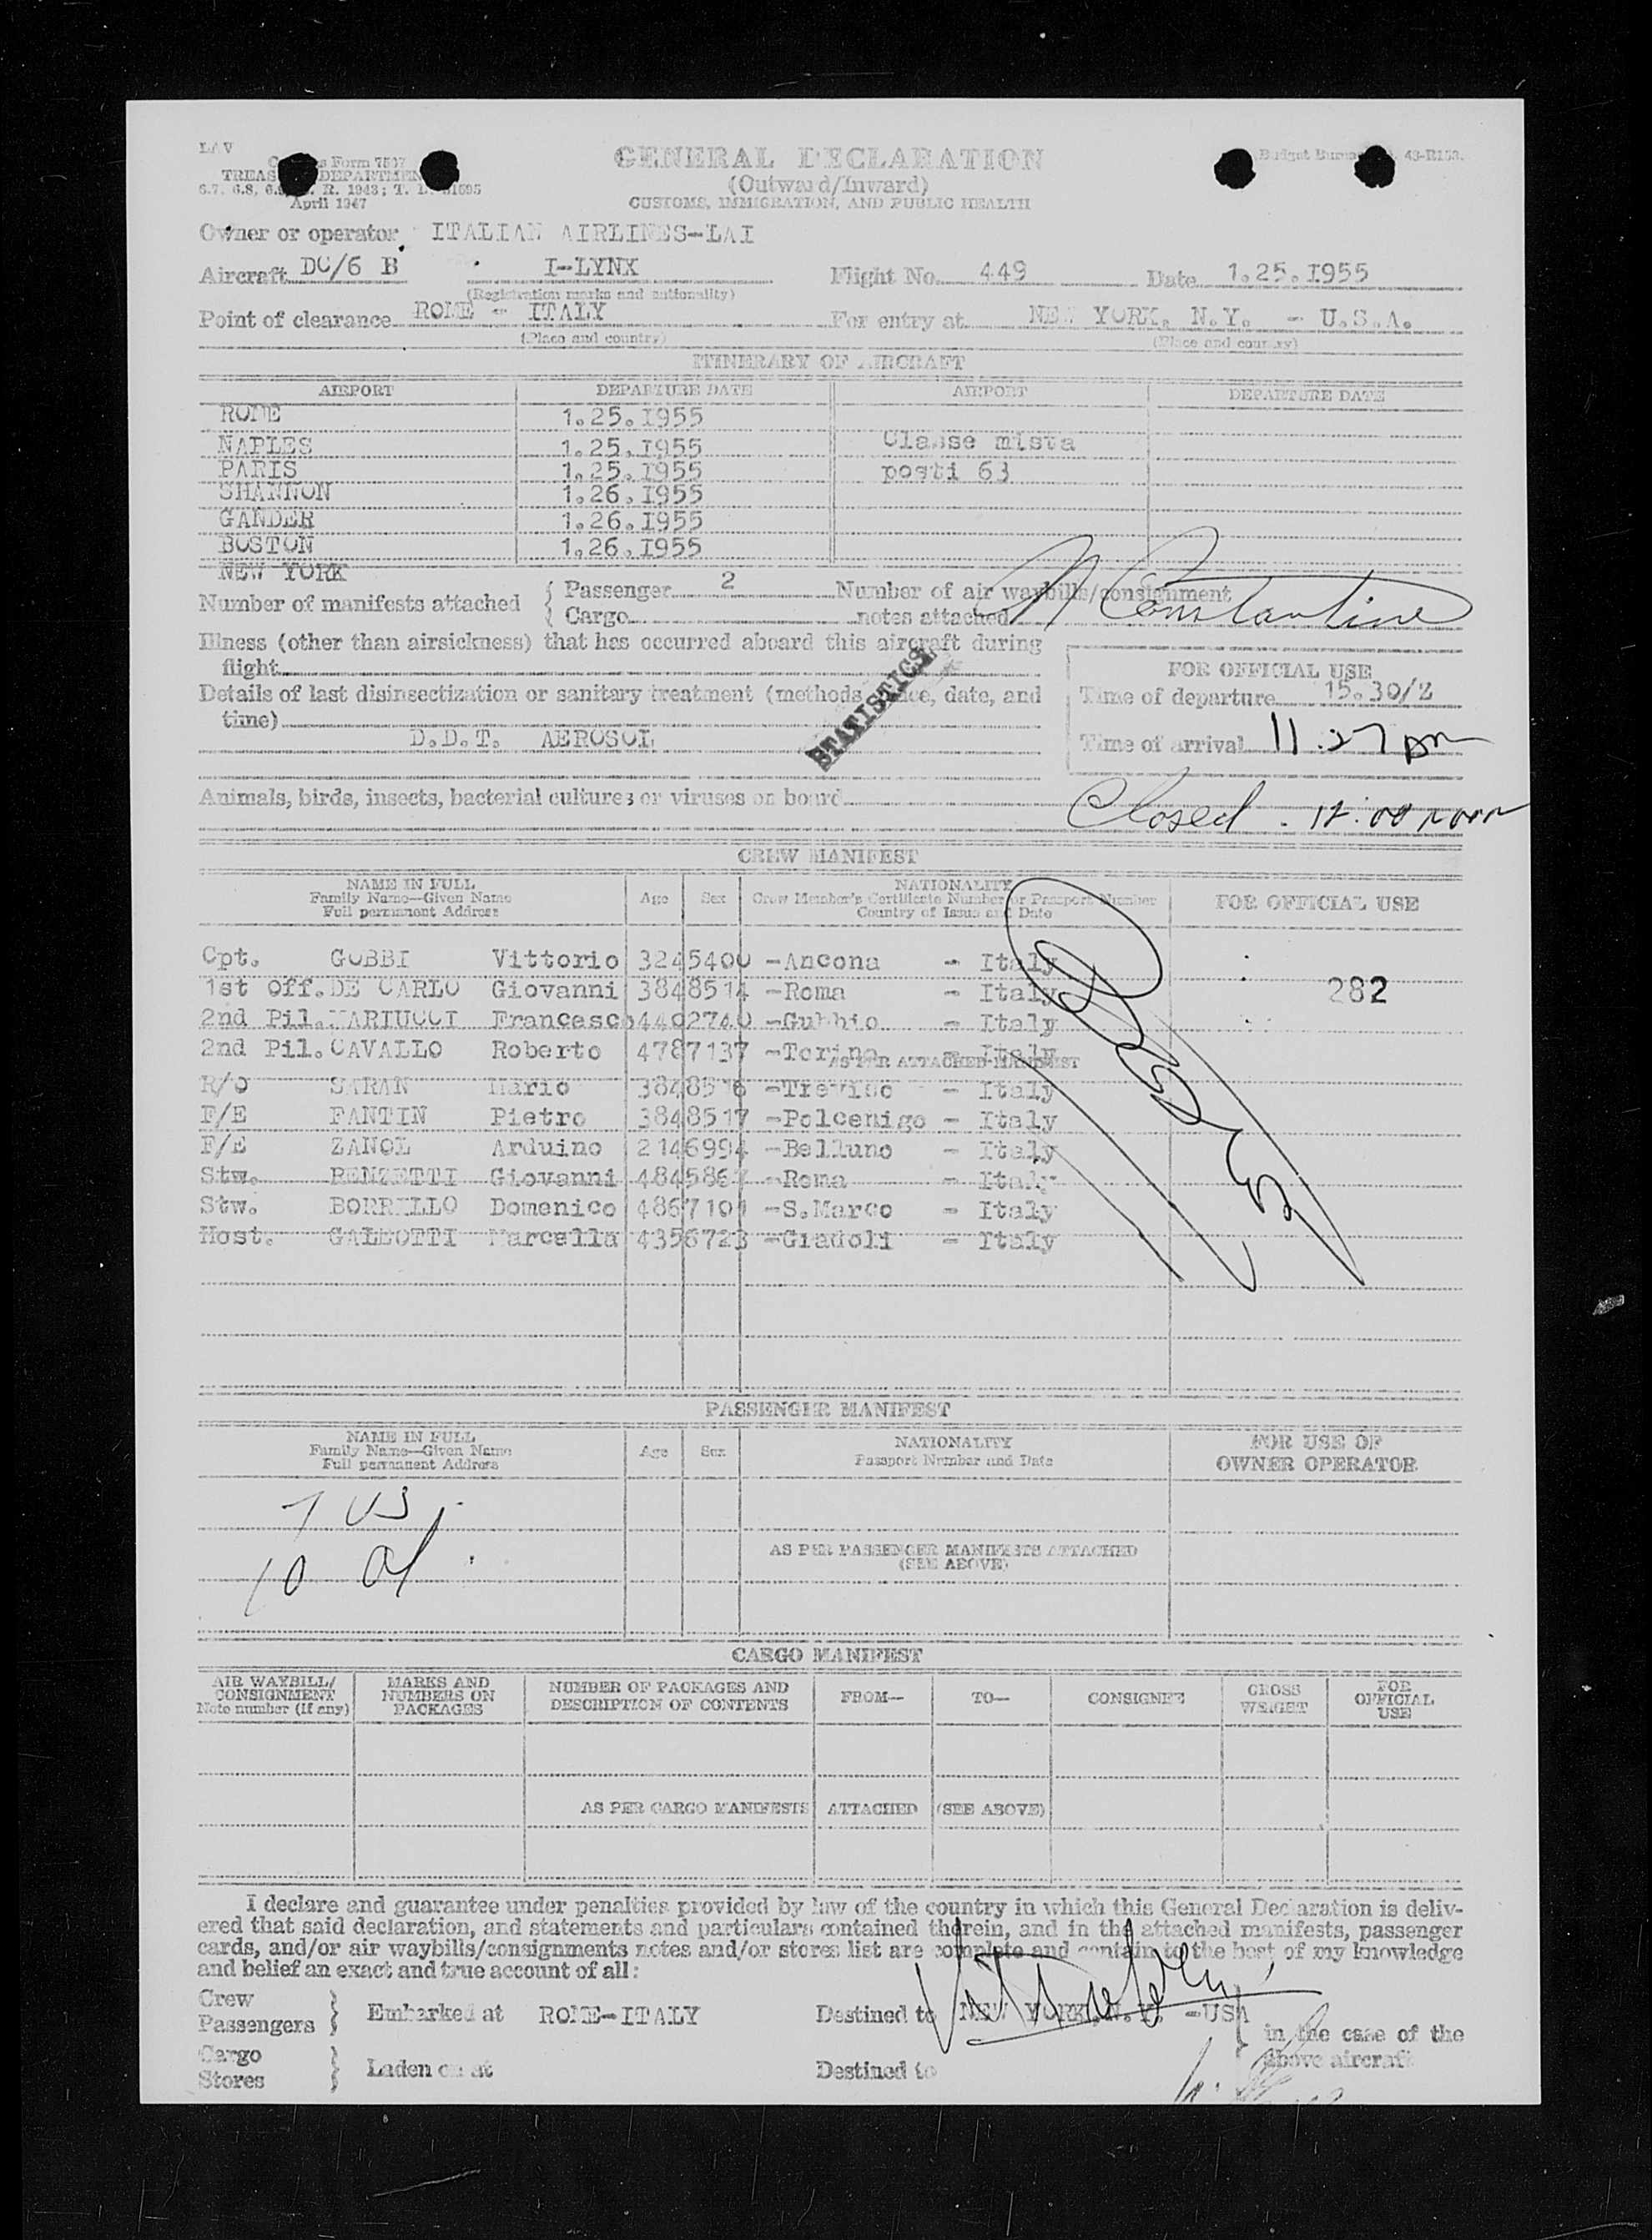 LAV
Form 7507
TREAS DEPARTMEN
6.7, 6.8, R. 1943; T. 51695
April 1947
GENERAL DECLARATION
(Outward/Inward)
CUSTOMS, IMMIGRATION, AND PUBLIC HEALTH
Budget Bureau 43-R153.
Owner or operator ITALIAN AIRLINES-LAI
Aircraft DC/6 B I-LYNX Flight No. 449 Date 1.25.1955
(Registration marks and nationality)
Point of clearance ROME - ITALY For entry at NEW YORK, N.Y. - U.S.A.
(Place and country) (Place and country)
ITINERARY OF AIRCRAFT
AIRPORT DEPARTURE DATE AIRPORT DEPARTURE DATE
ROME 1.25.1955
NAPLES 1.25.1955 Classe mista
PARIS 1.25.1955 posti 63
SHANNON 1.26.1955
GANDER 1.26.1955
BOSTON 1.26.1955
NEW YORK
Number of manifests attached { Passenger 2 Number of air waybills/consignment
Cargo notes attached
N Constantine
Illness (other than airsickness) that has occurred aboard this aircraft during
flight
Details of last disinsectization or sanitary treatment (methods, place, date, and
time)
D.D.T. AEROSOL
STATISTICS
FOR OFFICIAL USE
Time of departure 15.30/Z
Time of arrival 11:27 pm
Animals, birds, insects, bacterial cultures or viruses on board
Closed - 12:00 noon
CREW MANIFEST
NAME IN FULL
Family Name—Given Name
Full permanent Address
Age Sex
NATIONALITY
Crew Member's Certificate Number or Passport Number
Country of Issue and Date
FOR OFFICIAL USE
Cpt. GOBBI Vittorio 3245400 -Ancona - Italy
1st Off. DE CARLO Giovanni 3848514 -Roma - Italy
282
2nd Pil. MARIUCCI Francesco 4402740 -Gubbio - Italy
2nd Pil. CAVALLO Roberto 4787137 -Torino - Italy
AS PER ATTACHED MANIFEST
R/O SARAN Mario 3848516 -Treviso - Italy
F/E FANTIN Pietro 3848517 -Polcenigo - Italy
F/E ZANOL Arduino 2146994 -Belluno - Italy
Stw. RENZETTI Giovanni 4845867 -Roma - Italy
Stw. BORRILLO Domenico 4867101 -S.Marco - Italy
Host. GALEOTTI Marcella 4356723 -Gradoli - Italy
PASSENGER MANIFEST
NAME IN FULL
Family Name—Given Name
Full permanent Address
Age Sex
NATIONALITY
Passport Number and Date
FOR USE OF
OWNER OPERATOR
7 US
10 al
AS PER PASSENGER MANIFESTS ATTACHED
(SEE ABOVE)
CARGO MANIFEST
AIR WAYBILL/
CONSIGNMENT
Note number (if any)
MARKS AND
NUMBERS ON
PACKAGES
NUMBER OF PACKAGES AND
DESCRIPTION OF CONTENTS
FROM— TO— CONSIGNEE
GROSS
WEIGHT
FOR
OFFICIAL
USE
AS PER CARGO MANIFESTS ATTACHED (SEE ABOVE)
I declare and guarantee under penalties provided by law of the country in which this General Declaration is deliv-
ered that said declaration, and statements and particulars contained therein, and in the attached manifests, passenger
cards, and/or air waybills/consignments notes and/or stores list are complete and contain to the best of my knowledge
and belief an exact and true account of all:
Crew
Passengers } Embarked at ROME-ITALY Destined to NEW YORK, N.Y. -USA
in the case of the
above aircraft
Cargo
Stores } Laden on at Destined to